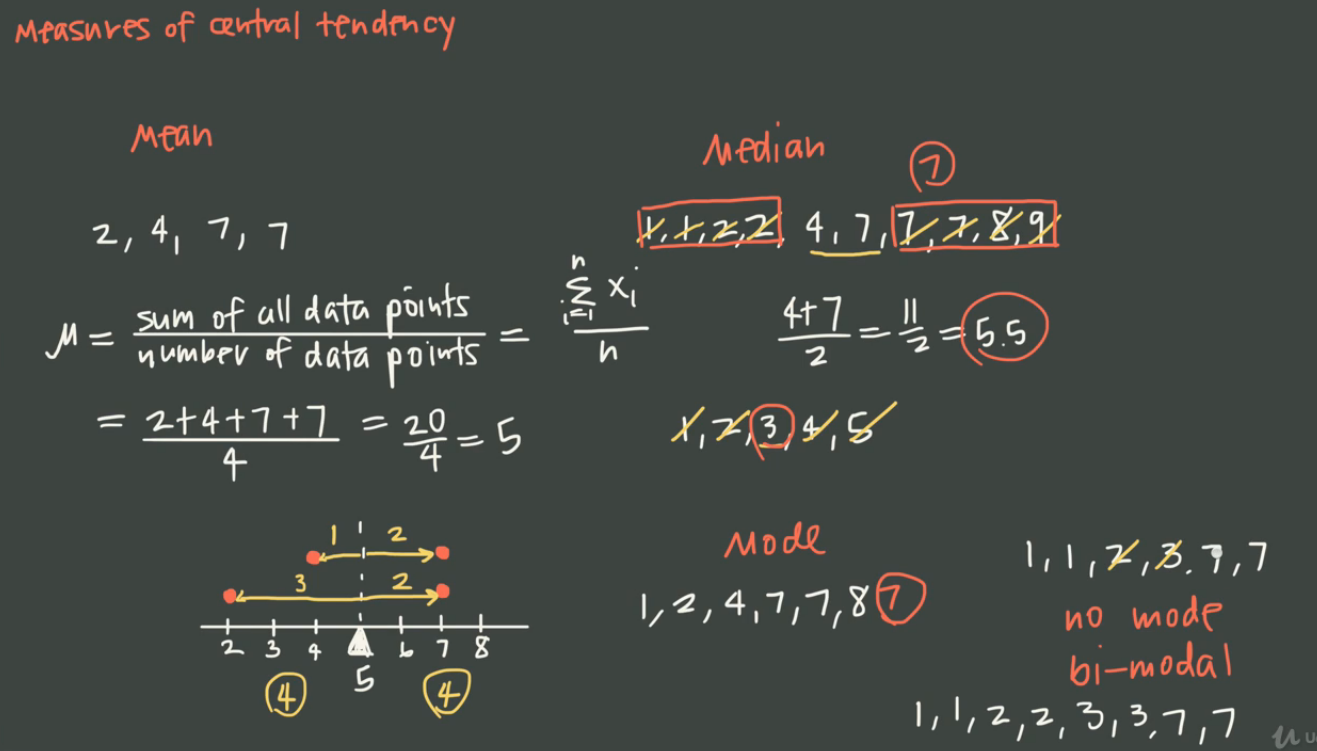 Measures of central tendency
Mean
2, 4, 7, 7
μ = sum of all data points / number of data points = n Σ i=1 xi / n
= 2+4+7+7 / 4 = 20/4 = 5
1 2
3 2
2 3 4 6 7 8
5
4 4
Median
7
1, 1, 2, 2, 4, 7, 7, 7, 8, 9
4+7 / 2 = 11/2 = 5.5
1, 2, 3, 4, 5
Mode
1, 2, 4, 7, 7, 8 7
1, 1, 2, 3, 7, 7
no mode
bi-modal
1, 1, 2, 2, 3, 3, 7, 7